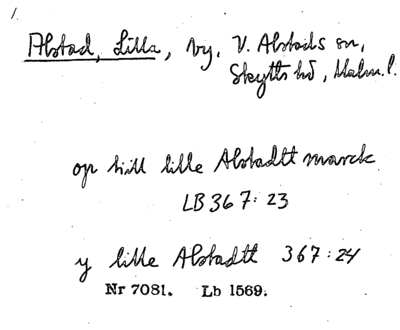 1.
Alstad, Lilla, by, V. Alstads sn,
Skytts hd, Malm. l.
op till lille Alstadtt marck
LB 367: 23
y lille Alstadtt 367:24
Nr 7081. Lb 1569.